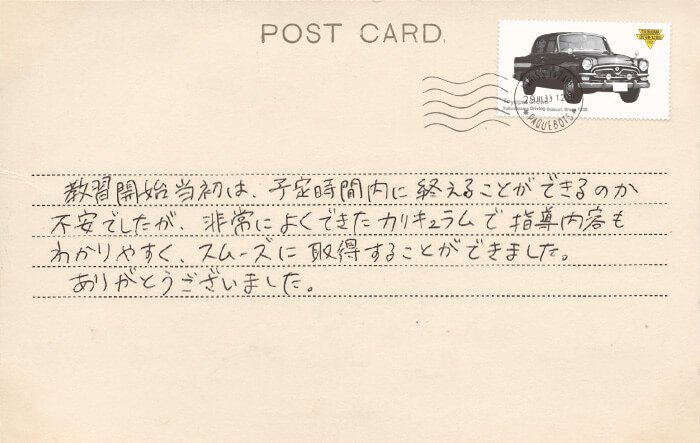 POST CARD.
29.III.33 12
PAQUEBOTS
教習開始当初は、予定時間内に終えることができるのか
不安でしたが、非常によくできたカリキュラムで指導内容も
わかりやすく、スムーズに取得することができました。
ありがとうございました。